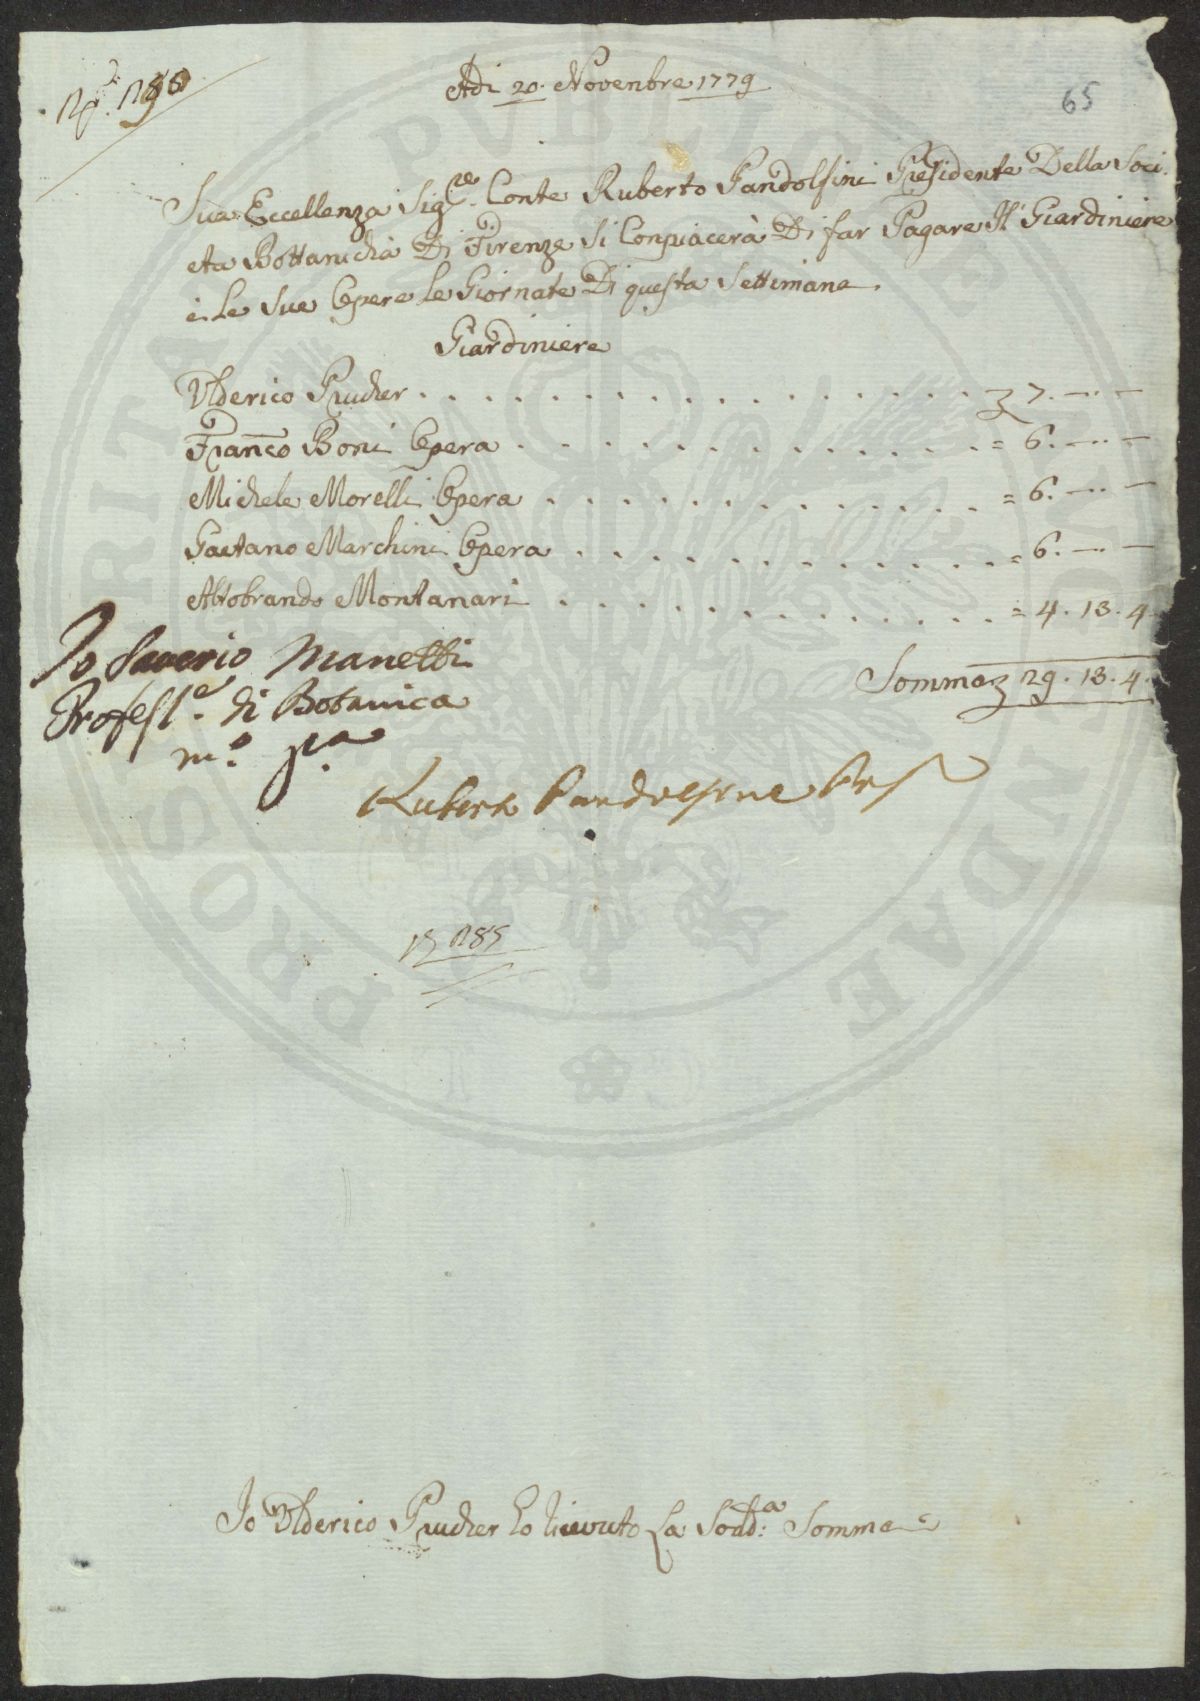 Adi 20. Novenbre 1779
65
Sua Eccellenza Sig.re Conte Ruberto Pandolfini Presidente Della Soci
eta Bottanicha Di Firenze Si Conpiacerà Di far Pagare Il Giardiniere
e Le Sue Opere Le Giornate Di questa Settimana.
Giardiniere
Ulderico Prucher . . . . . . . . . . . . . . . . . 7. — . —
Franco Boni Opera . . . . . . . . . . . . . = 6. — . —
Michele Morelli Opera . . . . . . . . . . . . = 6. — . —
Gaetano Marchini Opera . . . . . . . . . . . . = 6. — . —
Altobrando Montanari . . . . . . . . . . . . = 4. 13. 4.
Somma 29. 13. 4.
Io Saverio Manetti
Profess.e di Botanica
m.o p.a
Ruberto Pandolfini Pres
185
Io Ulderico Prucher ho ricevuto La Sodd.a Somma
PROSPERITATI PUBLICAE